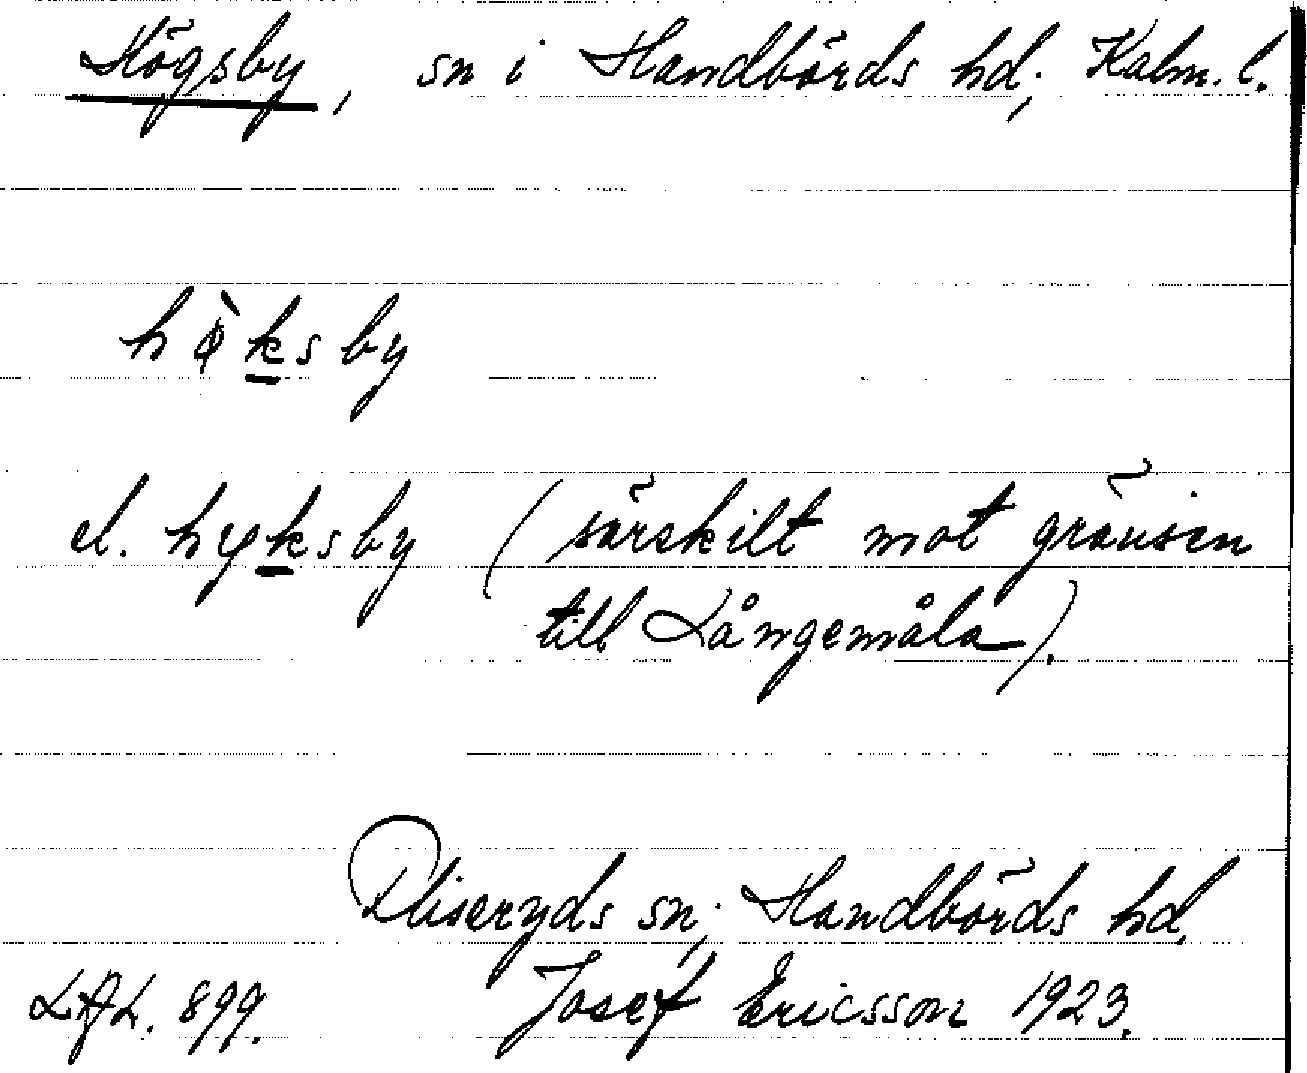 Högsby, sn i Handbörds hd; Kalm. l.
hø̀ksby
el. hyksby (särskilt mot gränsen
till Långemåla).
Fliseryds sn; Handbörds hd.
Josef Ericsson 1923.
899.